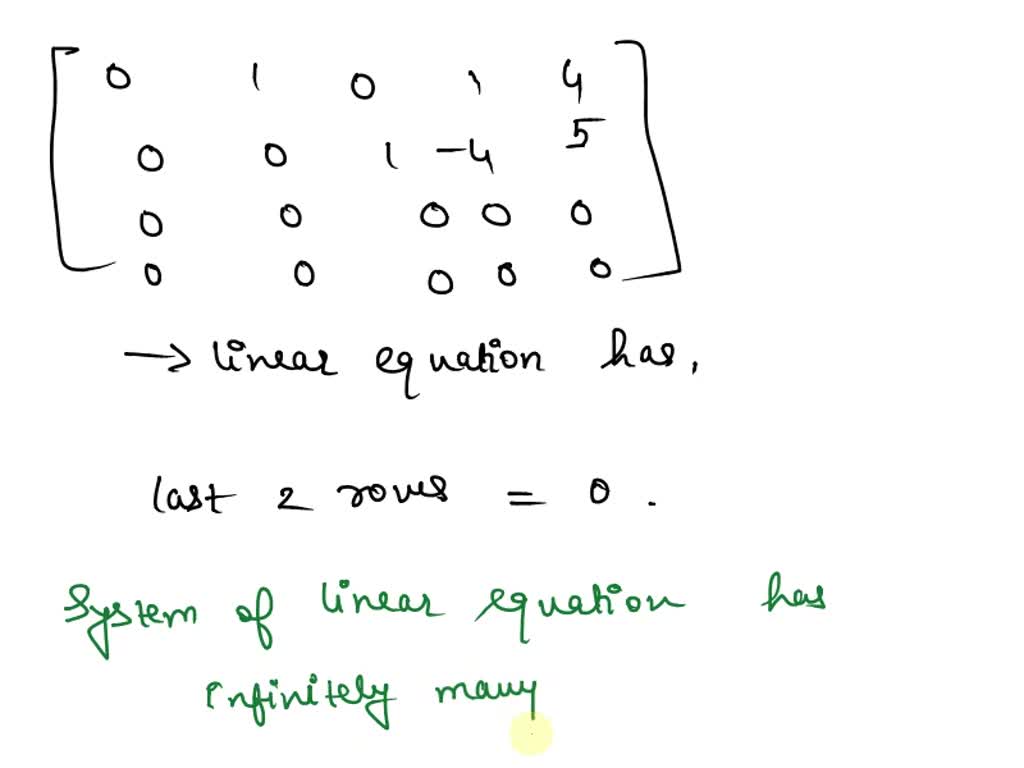 0 1 0 1 4
0 0 1 -4 5
0 0 0 0 0
0 0 0 0 0
→ linear equation has,
last 2 rows = 0 .
System of linear equation has
infinitely many